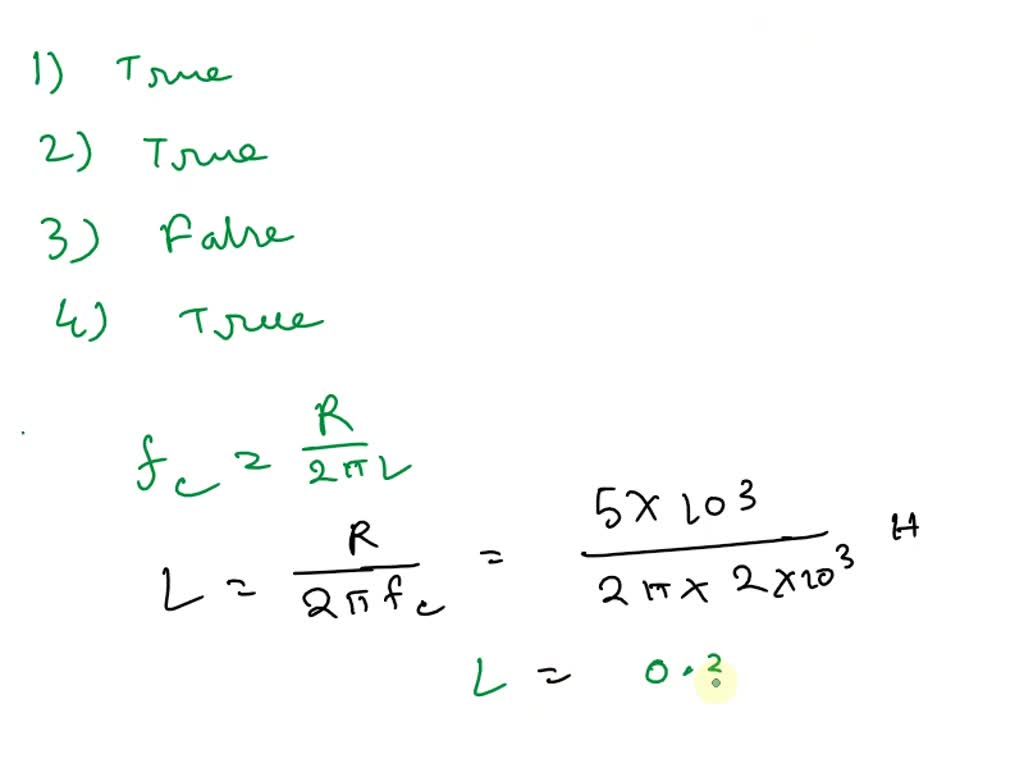 1) True
2) True
3) False
4) True
fc = R / 2πL
L = R / 2πfc = 5 × 10³ / 2π × 2 × 10³ H
L = 0.2